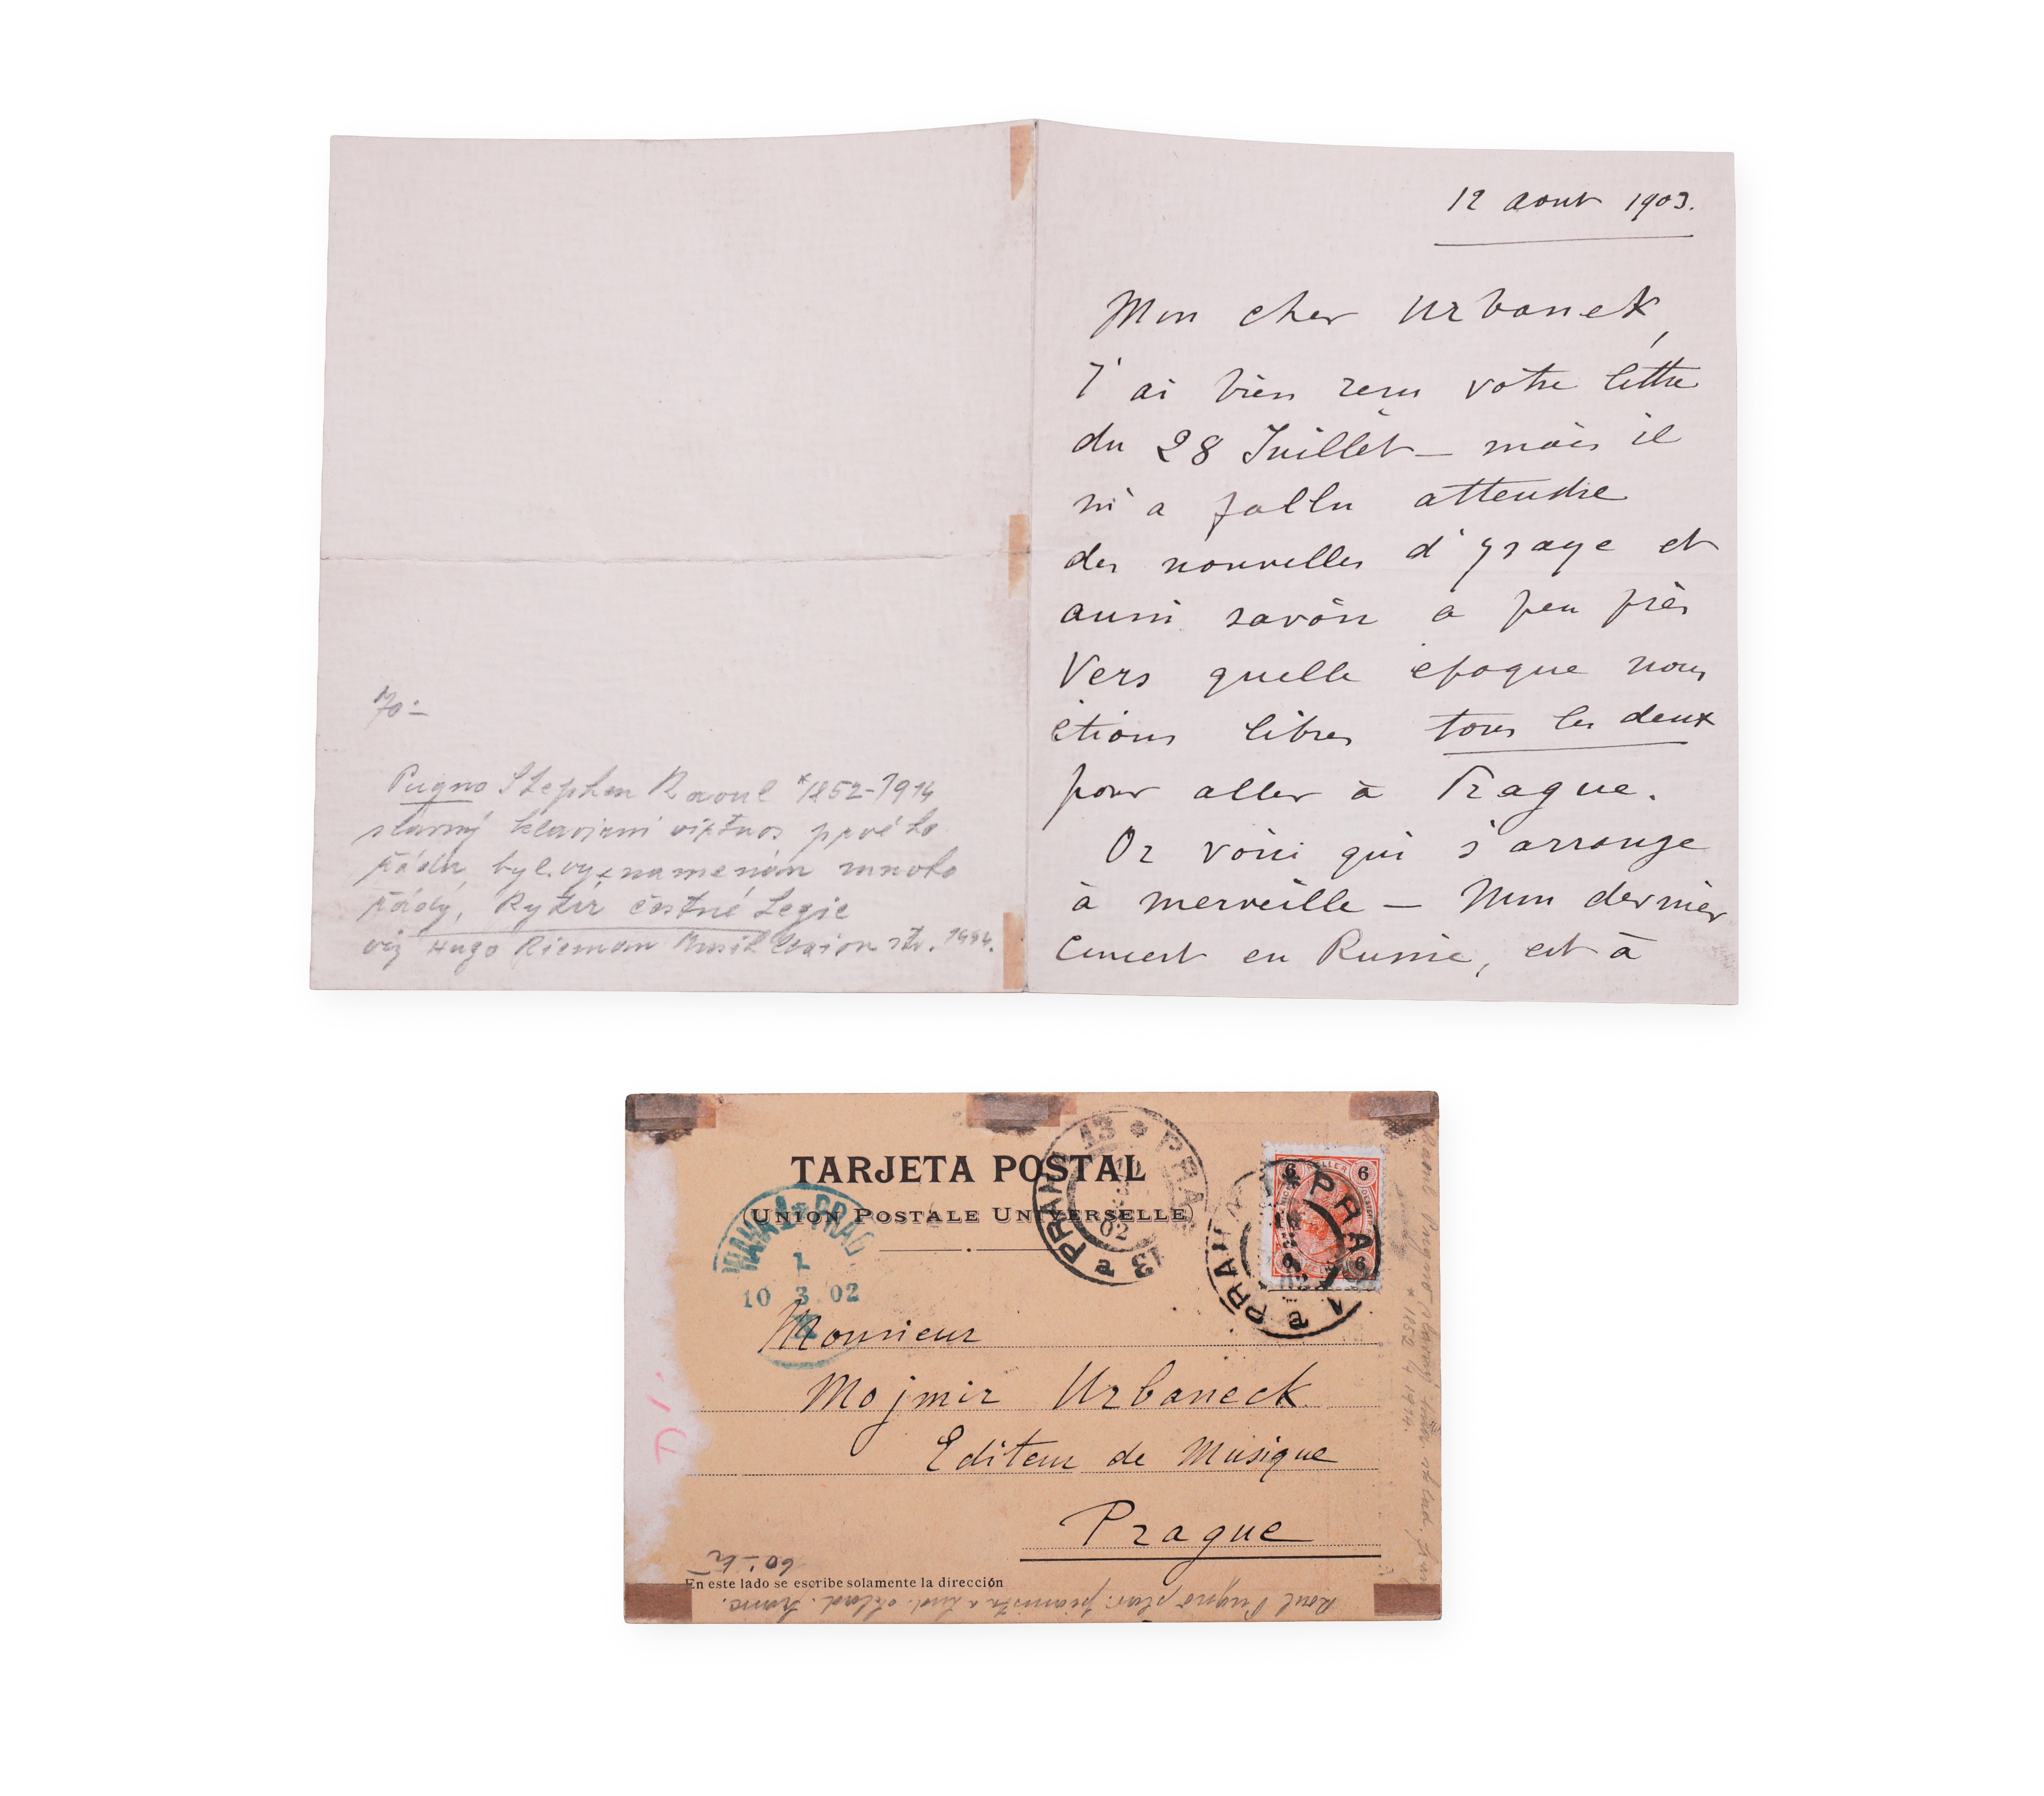 12 aout 1903.
Mon cher Urbanek,
J'ai bien reçu votre lettre
du 28 Juillet – mais il
m'a fallu attendre
des nouvelles d'Ysaye et
aussi savoir a peu près
vers quelle époque nous
étions libres tous les deux
pour aller à Prague.
Or voici qui s'arrange
à merveille – Mon dernier
Concert en Russie, est à
70:–
Pugno Stephen Raoul *1852-1914
slavný klavírní virtuos prvého
řádu, byl vyznamenán mnoho
řády, Rytíř čestné Legie
viz Hugo Rieman Musik Lexicon str.
TARJETA POSTAL
UNION POSTALE UNIVERSELLE
PRAHA 1 * PRAG
1
10 3 02
PRAHA 13 * PRAG 13
02
a
PRAHA 1 * PRAG 1
a
6 HELLER 6
6 6
Monsieur
Mojmir Urbaneck
Editeur de Musique
Prague
60:– K
En este lado se escribe solamente la dirección
Raoul Pugno slav. pianista a hud. sklad. franc.
Raoul Pugno slavný hud. sklad. fran
* 1852 1914.